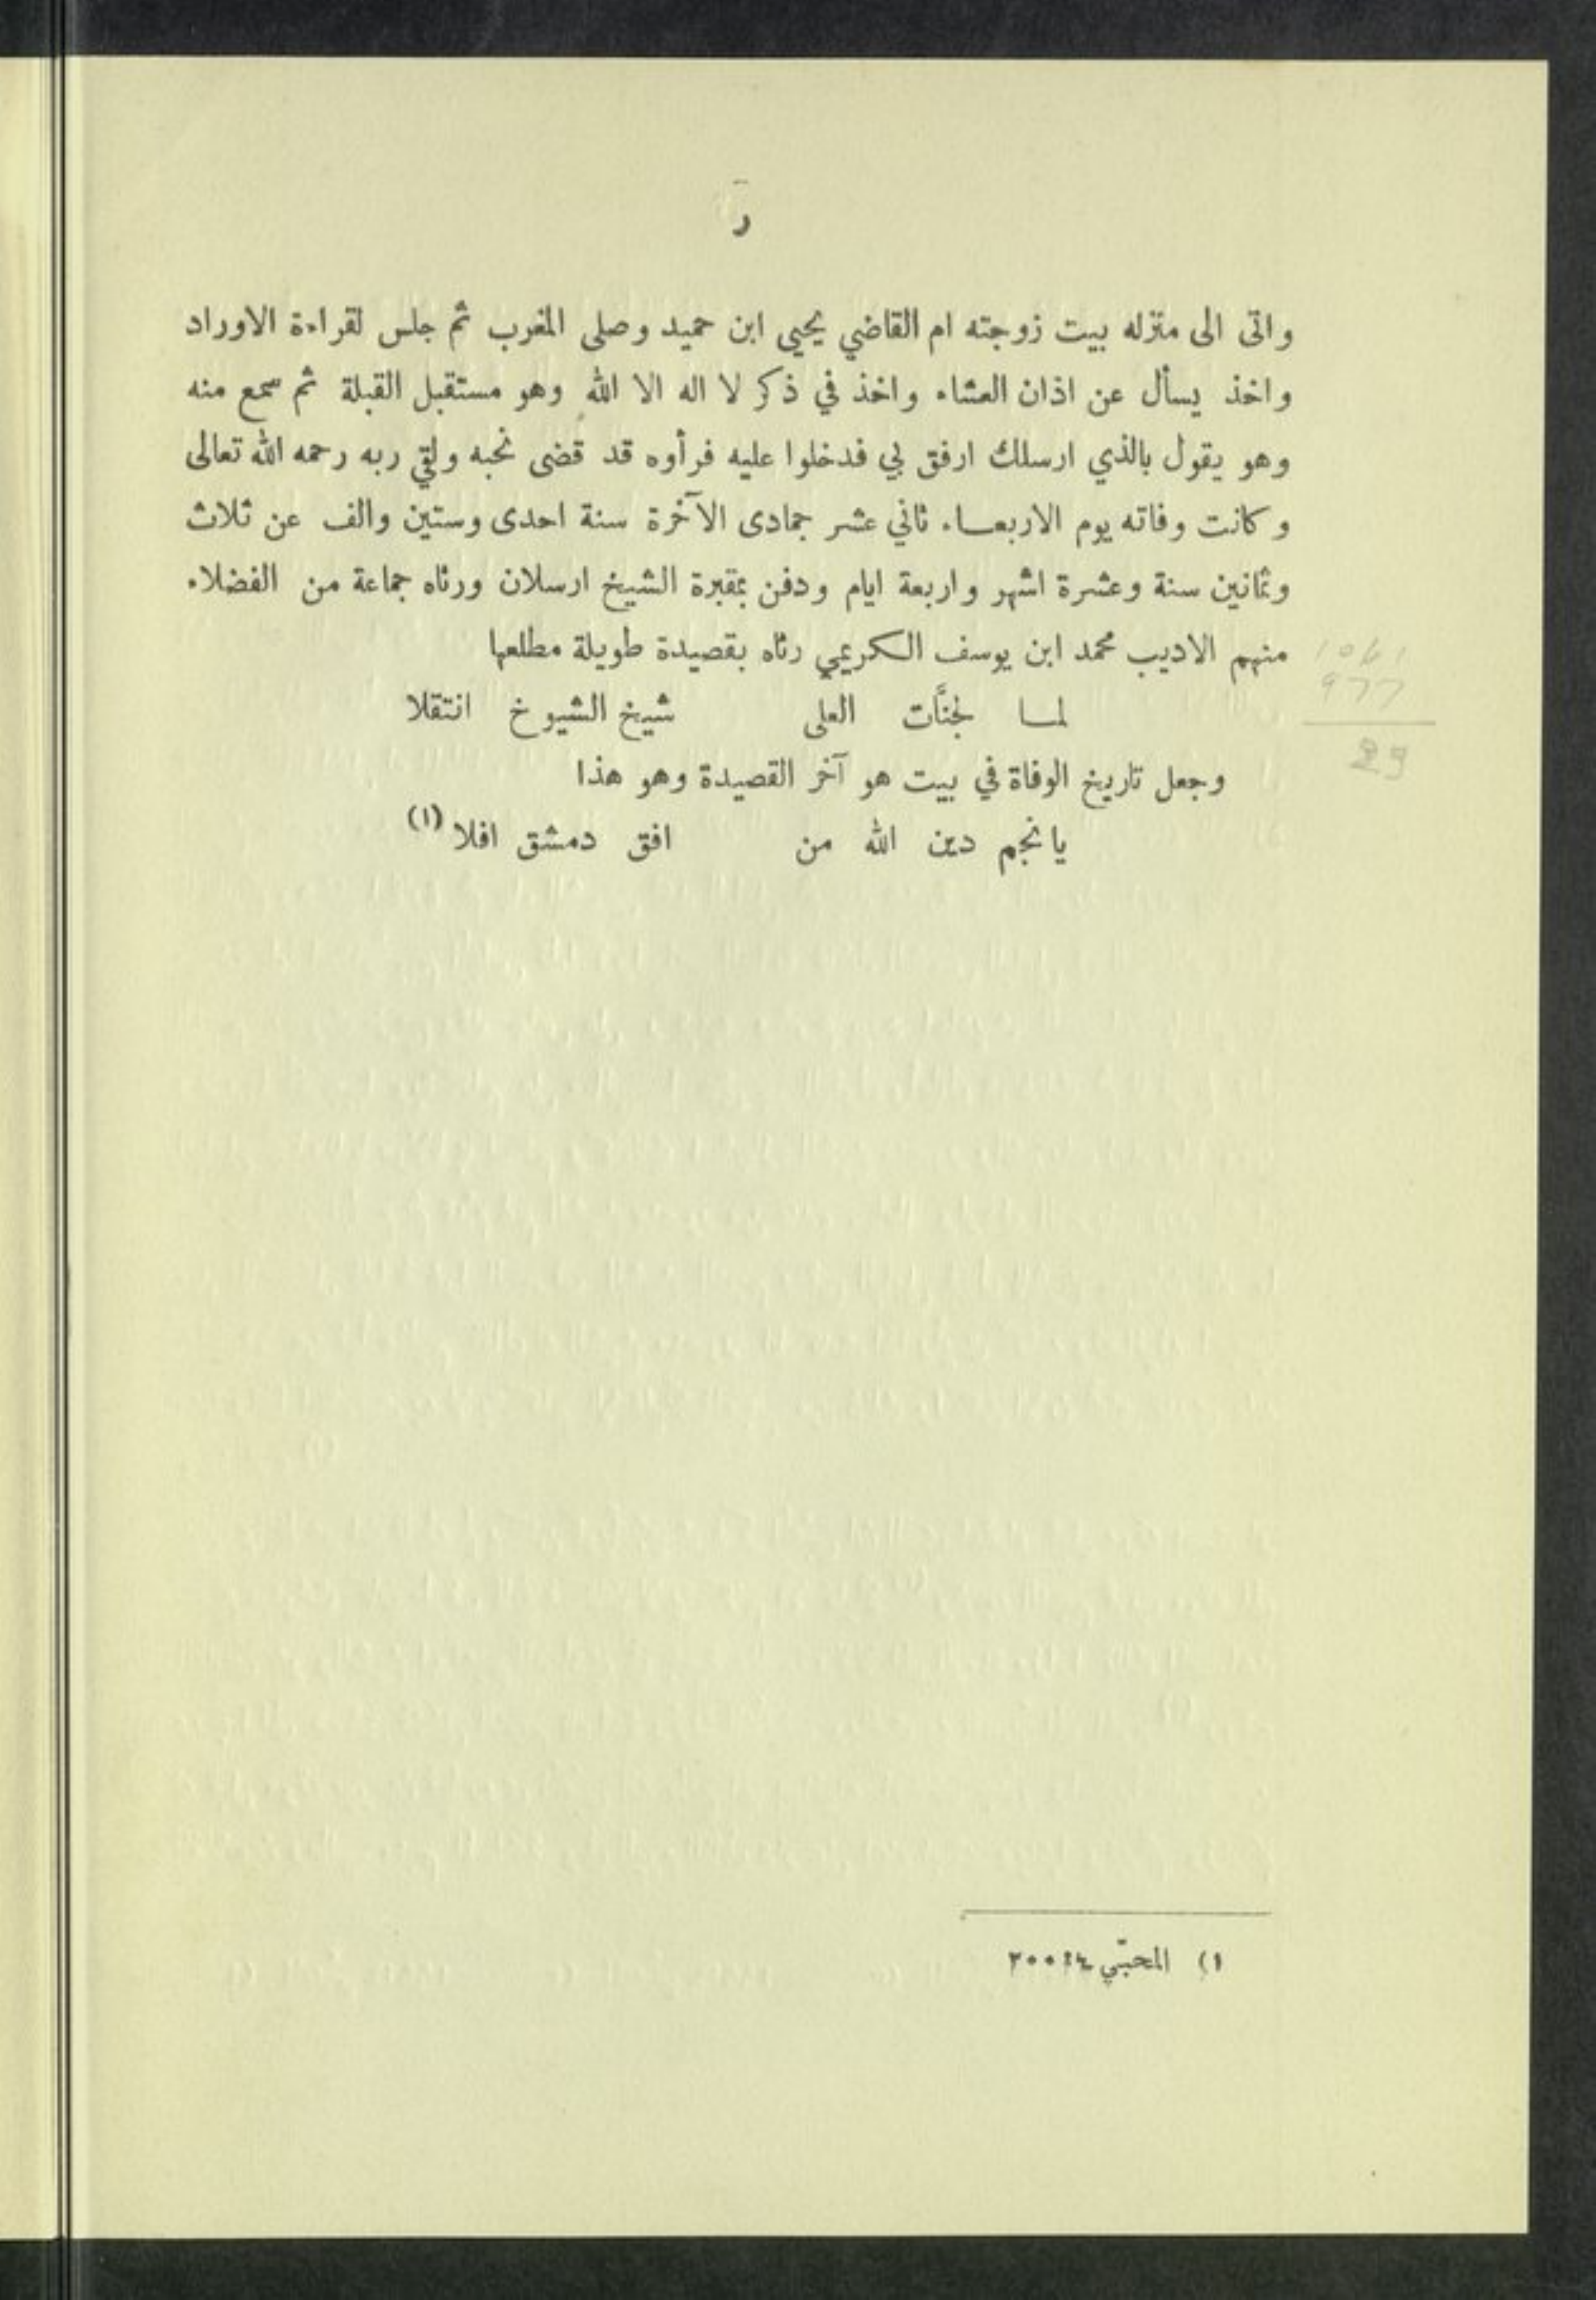 ر
واتى الى منزله بيت زوجته ام القاضي يحيى ابن حميد وصلى المغرب ثم جلس لقراءة الاوراد
واخذ يسأل عن اذان العشاء واخذ في ذكر لا اله الا الله وهو مستقبل القبلة ثم سمع منه
وهو يقول بالذي ارسلك ارفق بي فدخلوا عليه فرأوه قد قضى نحبه ولقي ربه رحمه الله تعالى
وكانت وفاته يوم الاربعاء ثاني عشر جمادى الآخرة سنة احدى وستين والف عن ثلاث
وثمانين سنة وعشرة اشهر واربعة ايام ودفن بمقبرة الشيخ ارسلان ورثاه جماعة من الفضلاء
منهم الاديب محمد ابن يوسف الكريمي رثاه بقصيدة طويلة مطلعها
لما لجنَّات العلى شيخ الشيوخ انتقلا
وجعل تاريخ الوفاة في بيت هو آخر القصيدة وهو هذا
يا نجم دين الله من افق دمشق افلا (١)
1061
977
١) المحبّي